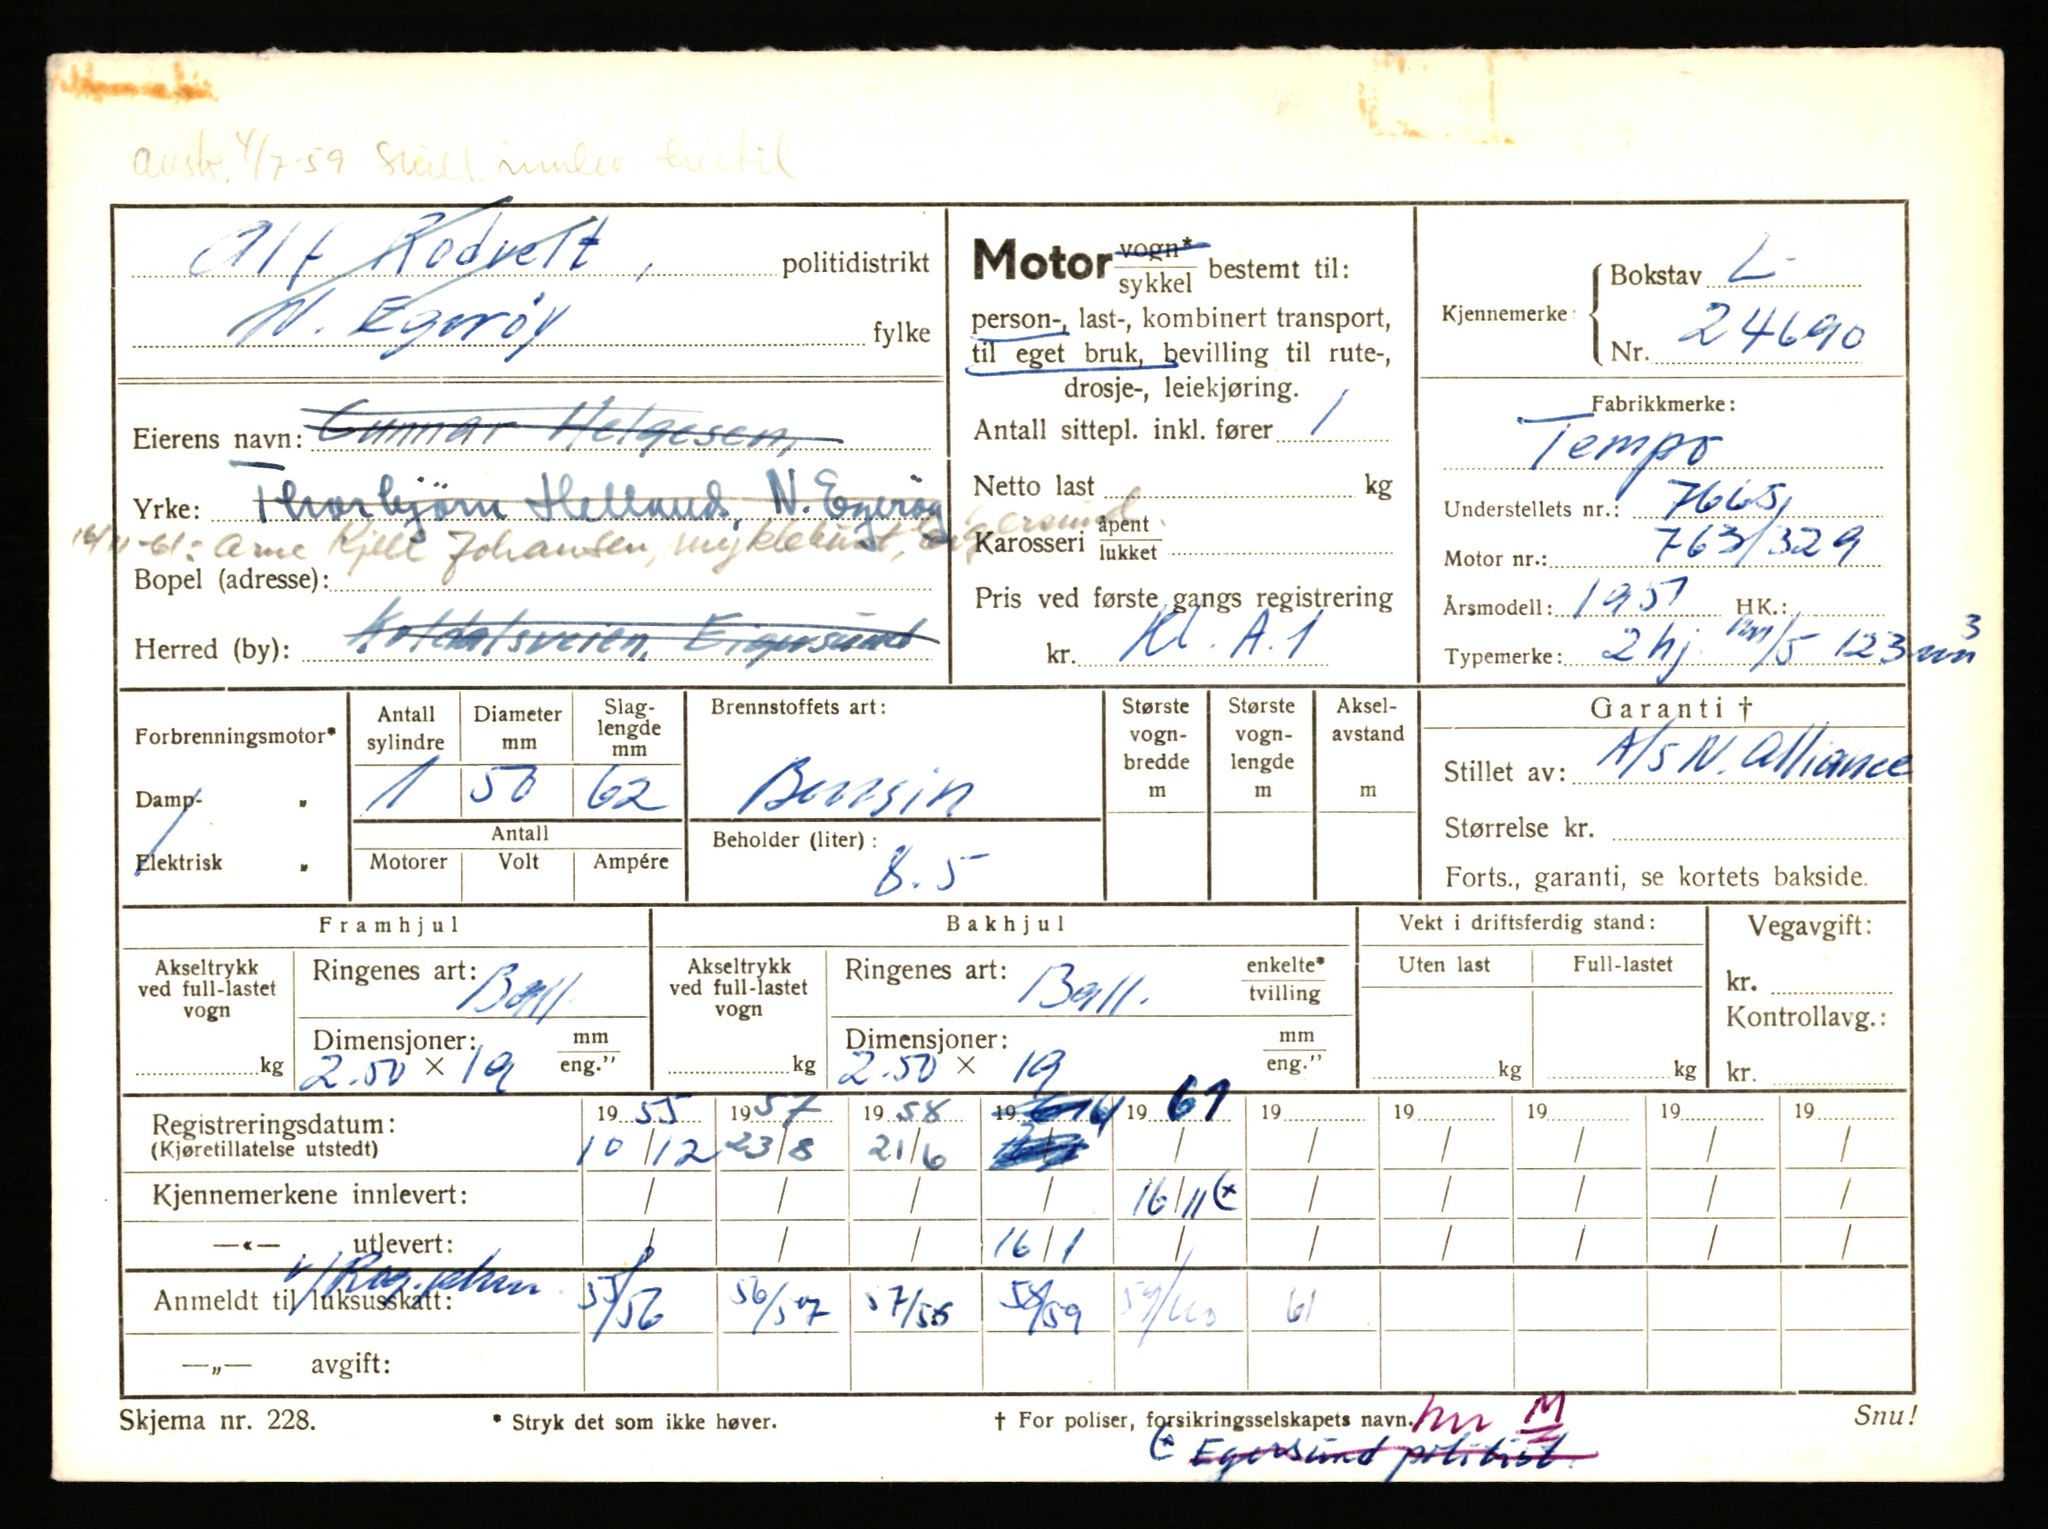 avsk. 4/7-59 Skilt innlev. hertil
Alf Rodvelt, politidistrikt
N. Egerøy fylke
Eierens navn: Gunnar Helgesen,
Yrke: Thorbjörn Helland, N. Egerøy
16/11-61: Arne Kjell Johansen, Myklebust, Eigersund.
Bopel (adresse):
Herred (by): Eigersund
Motor vogn*
sykkel bestemt til:
person-, last-, kombinert transport,
til eget bruk, bevilling til rute-,
drosje-, leiekjøring.
Antall sittepl. inkl. fører 1
Netto last kg
Karosseri åpent
lukket
Pris ved første gangs registrering
kr. Kl. A.1
Kjennemerke: Bokstav L-
Nr. 24690
Fabrikkmerke:
Tempo
Understellets nr.: 7665,
Motor nr.: 763/329
Årsmodell: 1951 HK.:
Typemerke: 2 hj. m/5 123 mm3
Forbrenningsmotor*
Damp- „
Elektrisk „
Antall sylindre Diameter mm Slag-lengde mm
1 50 62
Antall
Motorer Volt Ampére
Brennstoffets art:
Bensin
Beholder (liter):
8.5
Største vogn-bredde m
Største vogn-lengde m
Aksel-avstand m
Garanti †
Stillet av: A/S N. Alliance
Størrelse kr.
Forts., garanti, se kortets bakside.
Framhjul
Akseltrykk ved full-lastet vogn
kg
Ringenes art: Ball.
Dimensjoner: mm
2.50 × 19 eng.”
Bakhjul
Akseltrykk ved full-lastet vogn
kg
Ringenes art: Ball. enkelte*
tvilling
Dimensjoner: mm
2.50 × 19 eng.”
Vekt i driftsferdig stand:
Uten last Full-lastet
kg kg
Vegavgift:
kr.
Kontrollavg.:
kr.
Registreringsdatum: 19 55 19 57 19 58 19 19 61 19 19 19 19 19
(Kjøretillatelse utstedt) 10/12 23/8 21/6 / / / / / /
Kjennemerkene innlevert: / / / / 16/11 (* / / / / /
—«— utlevert: / / / 16/1 / / / / / /
v/Rog. phm.
Anmeldt til luksusskatt: 55/56 56/57 57/58 58/59 59/60 61
—„— avgift:
Skjema nr. 228. * Stryk det som ikke høver. † For poliser, forsikringsselskapets navn. M Snu!
(* Egersund politist.